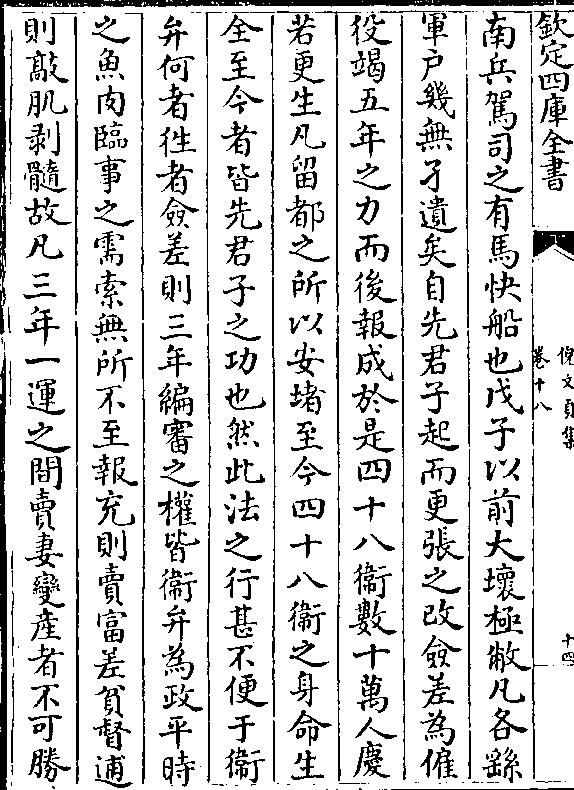 欽定四庫全書
倪文貞集
卷十八
十四
南兵駕司之有馬快船也戊子以前大壞極敝凡各繇
軍户幾無孑遺矣自先君子起而更張之改僉差為僱
役竭五年之力而後報成於是四十八衞數十萬人慶
若更生凡留都之所以安堵至今四十八衞之身命生
全至今者皆先君子之功也然此法之行甚不便于衞
弁何者徃者僉差則三年編審之權皆衞弁為政平時
之魚肉臨事之需索無所不至報充則賣富差貧督逋
則敲肌剥髓故凡三年一運之間賣妻變産者不可勝